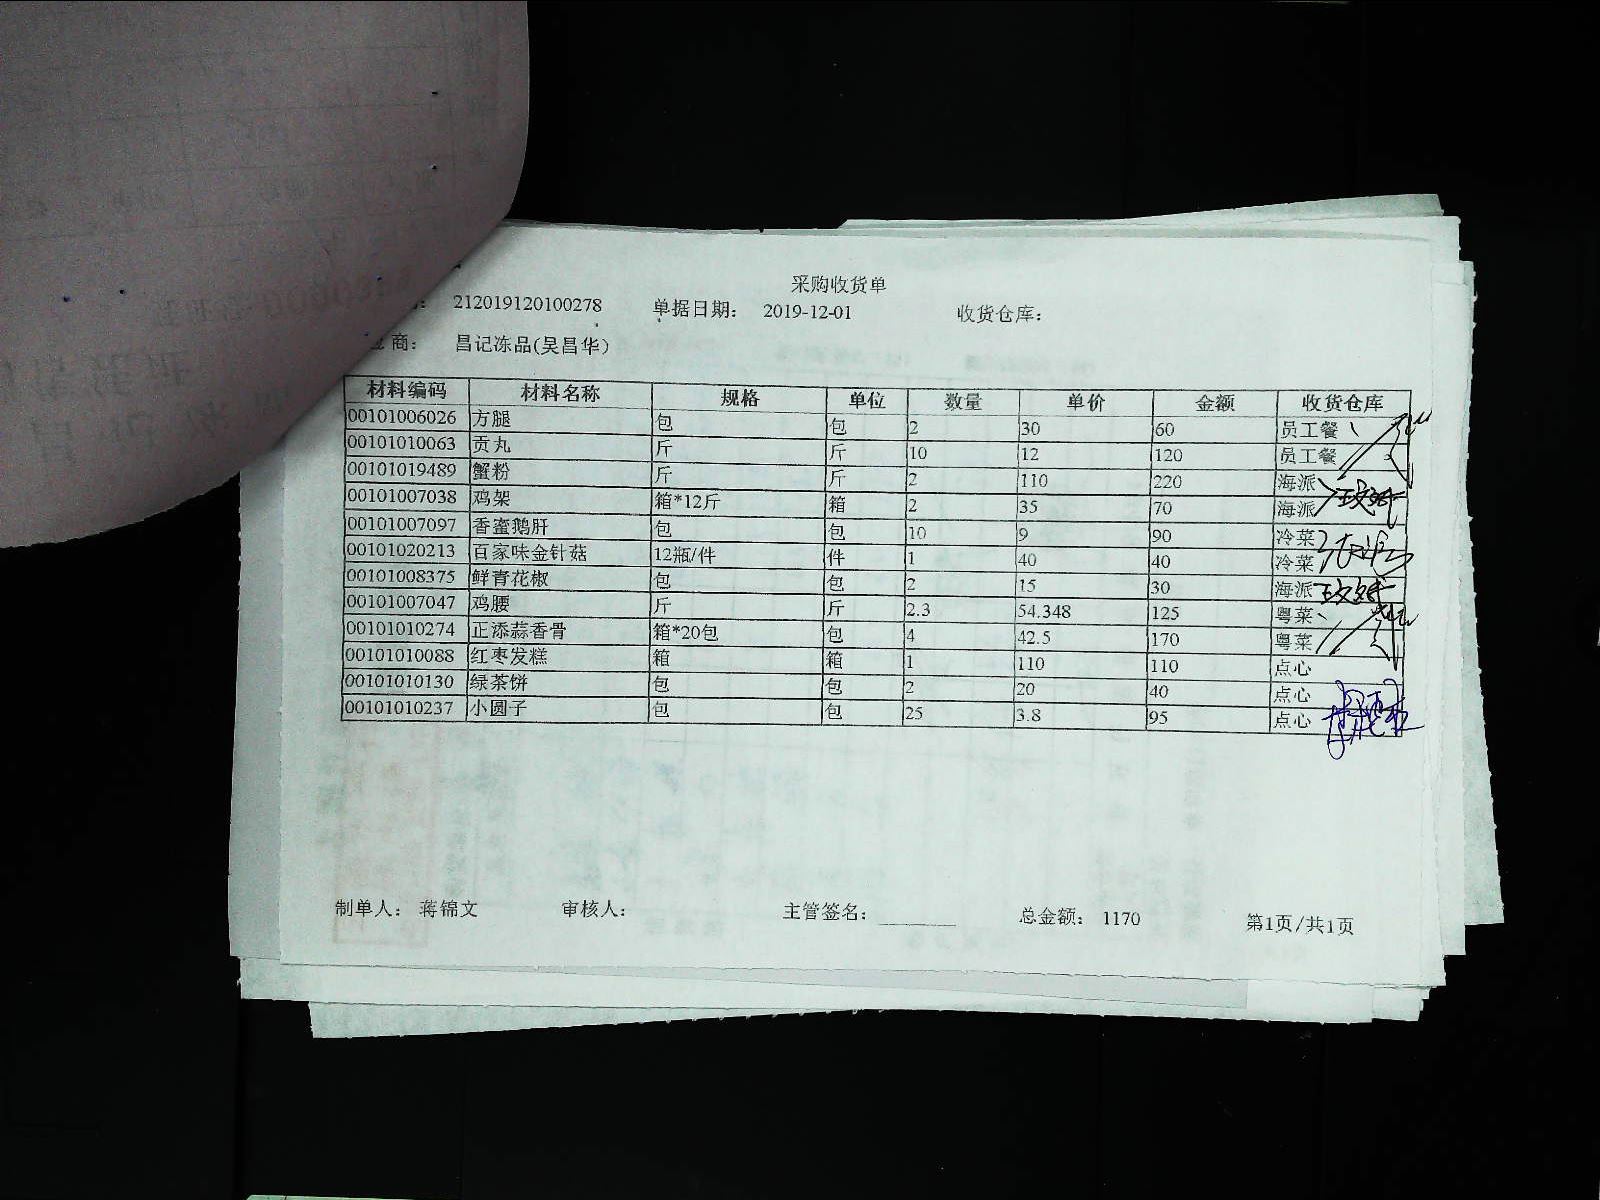 采购收货单
: 212019120100278 单据日期: 2019-12-01 收货仓库:
商: 昌记冻品(吴昌华)
材料编码 材料名称 规格 单位 数量 单价 金额 收货仓库
00101006026 方腿 包 包 2 30 60 员工餐
00101010063 贡丸 斤 斤 10 12 120 员工餐
00101019489 蟹粉 斤 斤 2 110 220 海派
00101007038 鸡架 箱*12斤 箱 2 35 70 海派
00101007097 香蜜鹅肝 包 包 10 9 90 冷菜
00101020213 百家味金针菇 12瓶/件 件 1 40 40 冷菜
00101008375 鲜青花椒 包 包 2 15 30 海派
00101007047 鸡腰 斤 斤 2.3 54.348 125 粤菜
00101010274 正添蒜香骨 箱*20包 包 4 42.5 170 粤菜
00101010088 红枣发糕 箱 箱 1 110 110 点心
00101010130 绿茶饼 包 包 2 20 40 点心
00101010237 小圆子 包 包 25 3.8 95 点心
制单人: 蒋锦文 审核人: 主管签名: 总金额: 1170 第1页/共1页